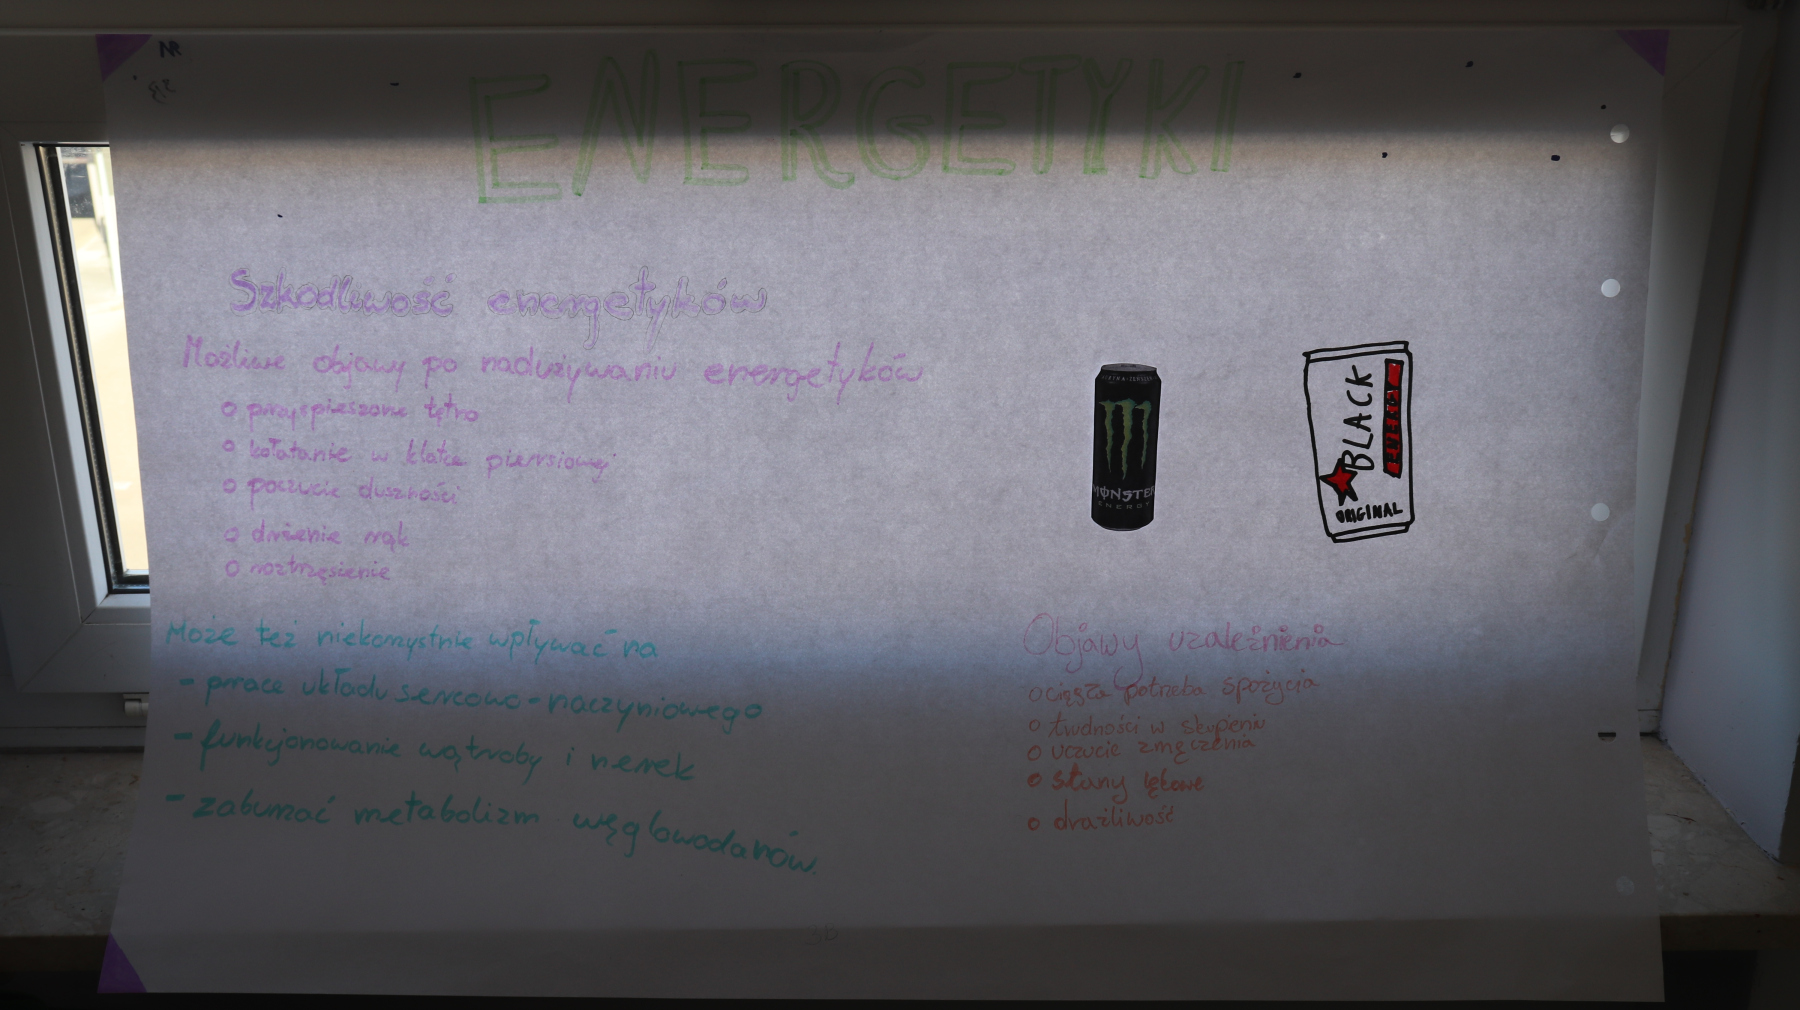 NR
ENERGETYKI
Szkodliwość energetyków
Możliwe objawy po nadużywaniu energetyków
o przyspieszone tętno
o kołatanie w klatce piersiowej
o poczucie duszności
o drżenie rąk
o roztrzęsienie
Może też niekorzystnie wpływać na
- prace układu sercowo-naczyniowego
- funkcjonowanie wątroby i nerek
- zaburzać metabolizm węglowodanów.
MONSTER
ENERGY
BLACK
ORIGINAL
Objawy uzależnienia
o ciągła potrzeba spożycia
o trudności w skupieniu
o uczucie zmęczenia
o stany lękowe
o drażliwość